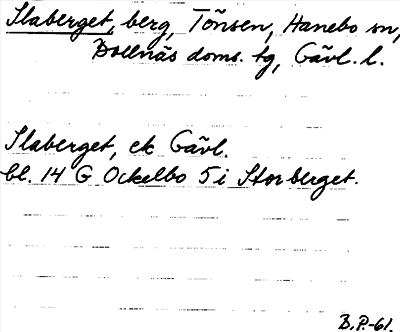 Slaberget, berg, Tõnsen, Hanebo sn,
Bollnäs doms. tg, Gävl. l.
Slaberget, ek Gävl.
bl. 14 G Ockelbo 5 i Storberget.
B.P.-61.